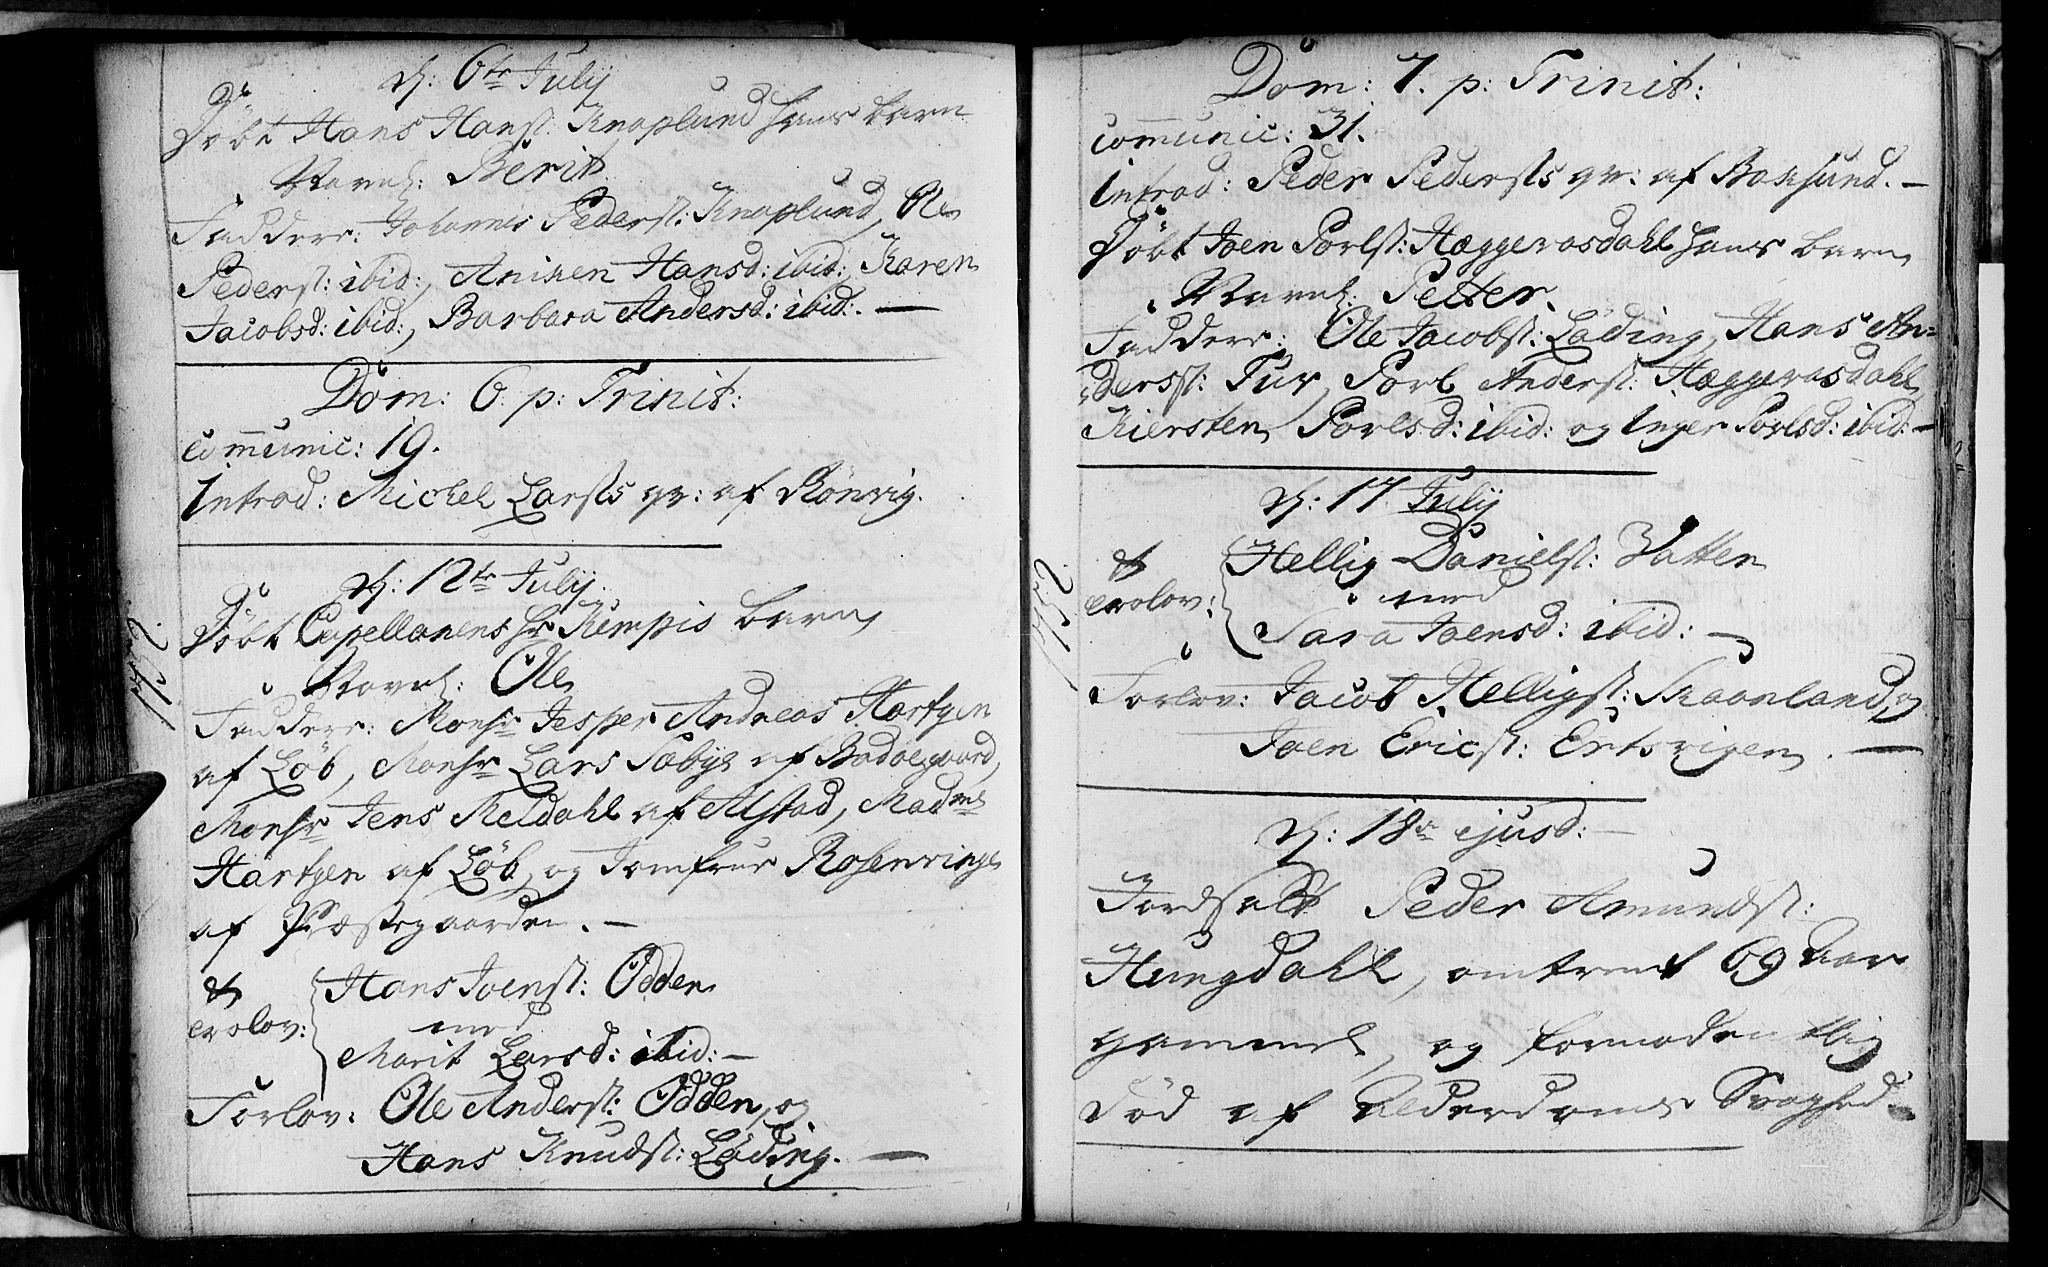 d: 6te July
Döbt Hans Hansf: Knaplund hans barn
Navnl: Berit.
Faddere: Johannes Pedersf: Knaplund, Ole
Pedersf: ibid:, Aniken Hansd: ibid:, Karen
Jacobsd: ibid:, Barbara Andersd: ibid:. —
Dom: 6. p: Trinit:
communic: 19.
Introd: Michel Larsfs qv: af Rönvig.
d: 12te July.
1752.
Döbt Capellanens hr Kempis barn
Navnl: Ole
Faddere: Monsr Jesper Andreas Hartgen
af Löb, Monsr Lars Sæbye af Bodöegaard,
Monsr Jens Meldahl af Alstad, Madme
Hartgen af Löb, og Jomfrue Rosenvinge
af Præstegaarden. —
Hans Joensf: Odden
med
erolov:
Marit Larsd: ibid: —
Forlov: Ole Andersf: Odden, og
Hans Knudsf: Löding. —
Dom: 7. p: Trinit:
communic: 31.
Introd: Peder Pedersfs qv: af Boksund. —
Döbt Joen Porlsf: Hæggemosdahl hans barn
Navnl: Petter.
Faddere: Ole Jacobsf: Löding, Hans An-
dersf: Tuv, Porl Andersf: Hæggemosdahl,
Kiersten Porlsd: ibid: og Inger Porlsd: ibid: —
d: 17 July
1752.
Hellig Danielsf: Vatten
med
erolov:
Sara Joensd: ibid: —
Forlov: Jacob Helligsf: Skaanland, og
Joen Ericsf: Ertsvigen. —
d: 18de ejusd: —
Jordfæst Peder Amundsf:
Hungdahl, omtrent 69 Aar
gammel, og formodentlig
död af Alderdoms Svaghed. —